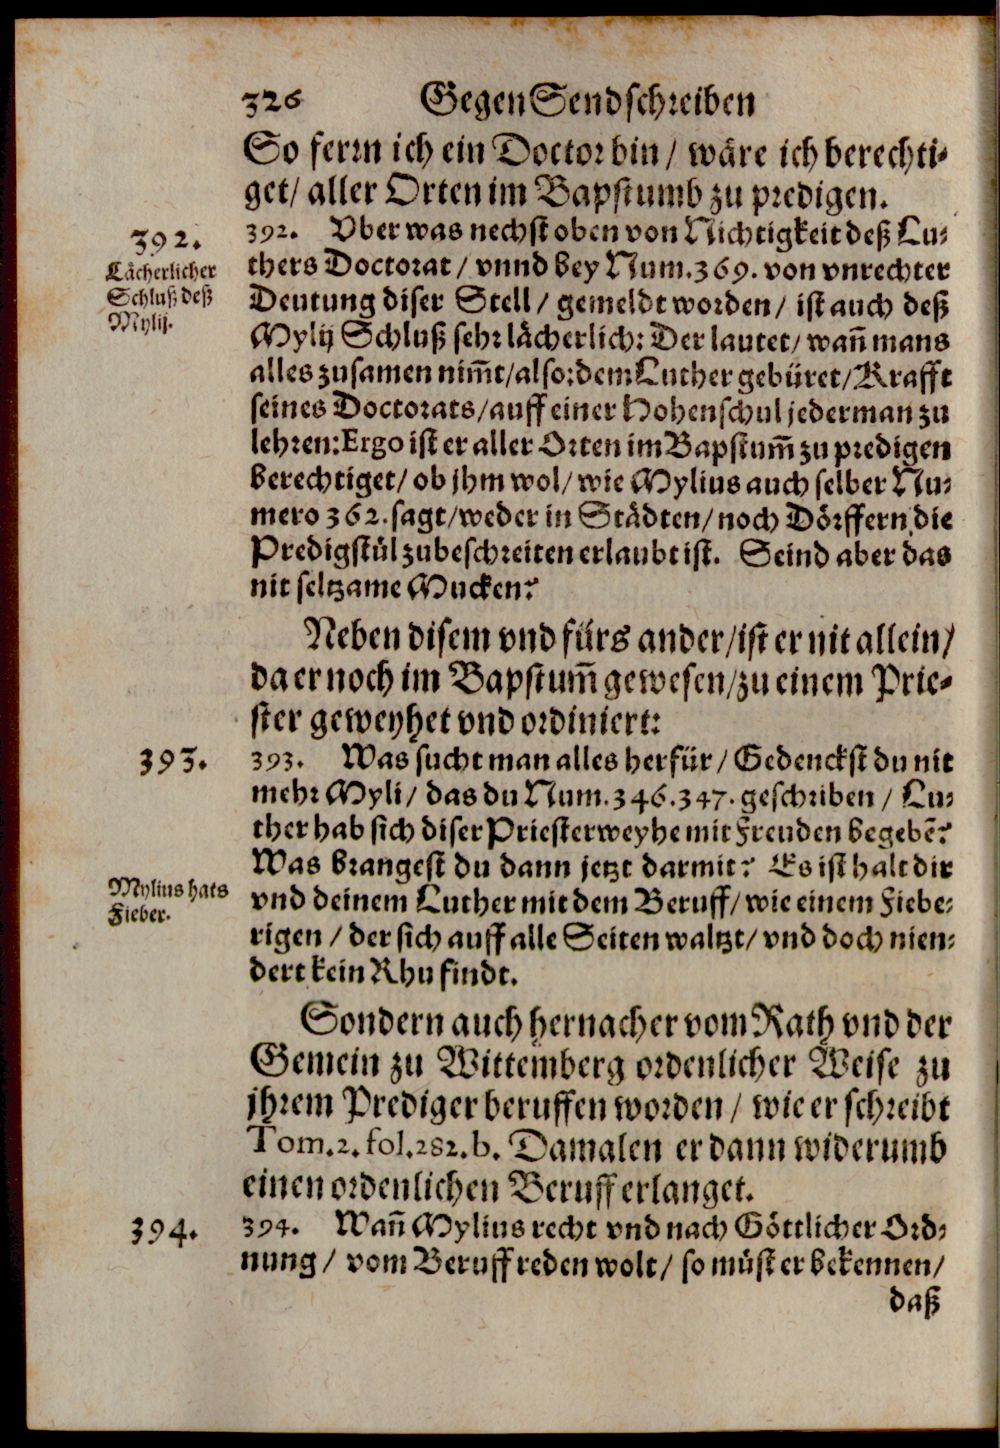 326 GegenSendschreiben
So ferrn ich ein Doctor bin / wäre ich berechti-
get/ aller Orten im Bapstumb zu predigen.
392.
392. Vber was nechst oben von Nichtigkeit deß Lu-
Lächerlicher
Schluß deß
Mylij.
thers Doctorat / vnnd bey Num. 369. von vnrechter
Deutung diser Stell / gemeldt worden / ist auch deß
Mylij Schluß sehr lächerlich: Der lautet/ wañ mans
alles zusamen nim̃t/also: dem Luther gebüret/ Krafft
seines Doctorats/auff einer Hohenschul jederman zu
lehren: Ergo ist er aller Orten im Bapstum̃ zu predigen
berechtiget/ ob jhm wol/ wie Mylius auch selber Nu-
mero 362. sagt/weder in Städten/ noch Dörffern die
Predigstül zubeschreiten erlaubt ist. Seind aber das
nit seltzame Mucken?
Neben disem vnd fürs ander/ist er nit allein/
da er noch im Bapstum̃ gewesen/zu einem Prie-
ster geweyhet vnd ordiniert:
393.
393. Was sucht man alles herfür / Gedenckst du nit
mehr Myli/ das du Num. 346. 347. geschriben / Lu-
ther hab sich diser Priesterweyhe mit Freuden begebẽ?
Was brangest du dann jetzt darmit? Es ist halt dir
Mylius hats
Fieber.
vnd deinem Luther mit dem Beruff/ wie einem Fiebe-
rigen / der sich auff alle Seiten waltzt/ vnd doch nien-
dert kein Rhu findt.
Sondern auch hernacher vom Rath vnd der
Gemein zu Wittemberg ordenlicher Weise zu
jhrem Prediger beruffen worden / wie er schreibt
Tom. 2. fol. 282. b. Damalen er dann widerumb
einen ordenlichen Beruff erlanget.
394.
394. Wañ Mylius recht vnd nach Göttlicher Ord-
nung / vom Beruff reden wolt / so müst er bekennen/
daß